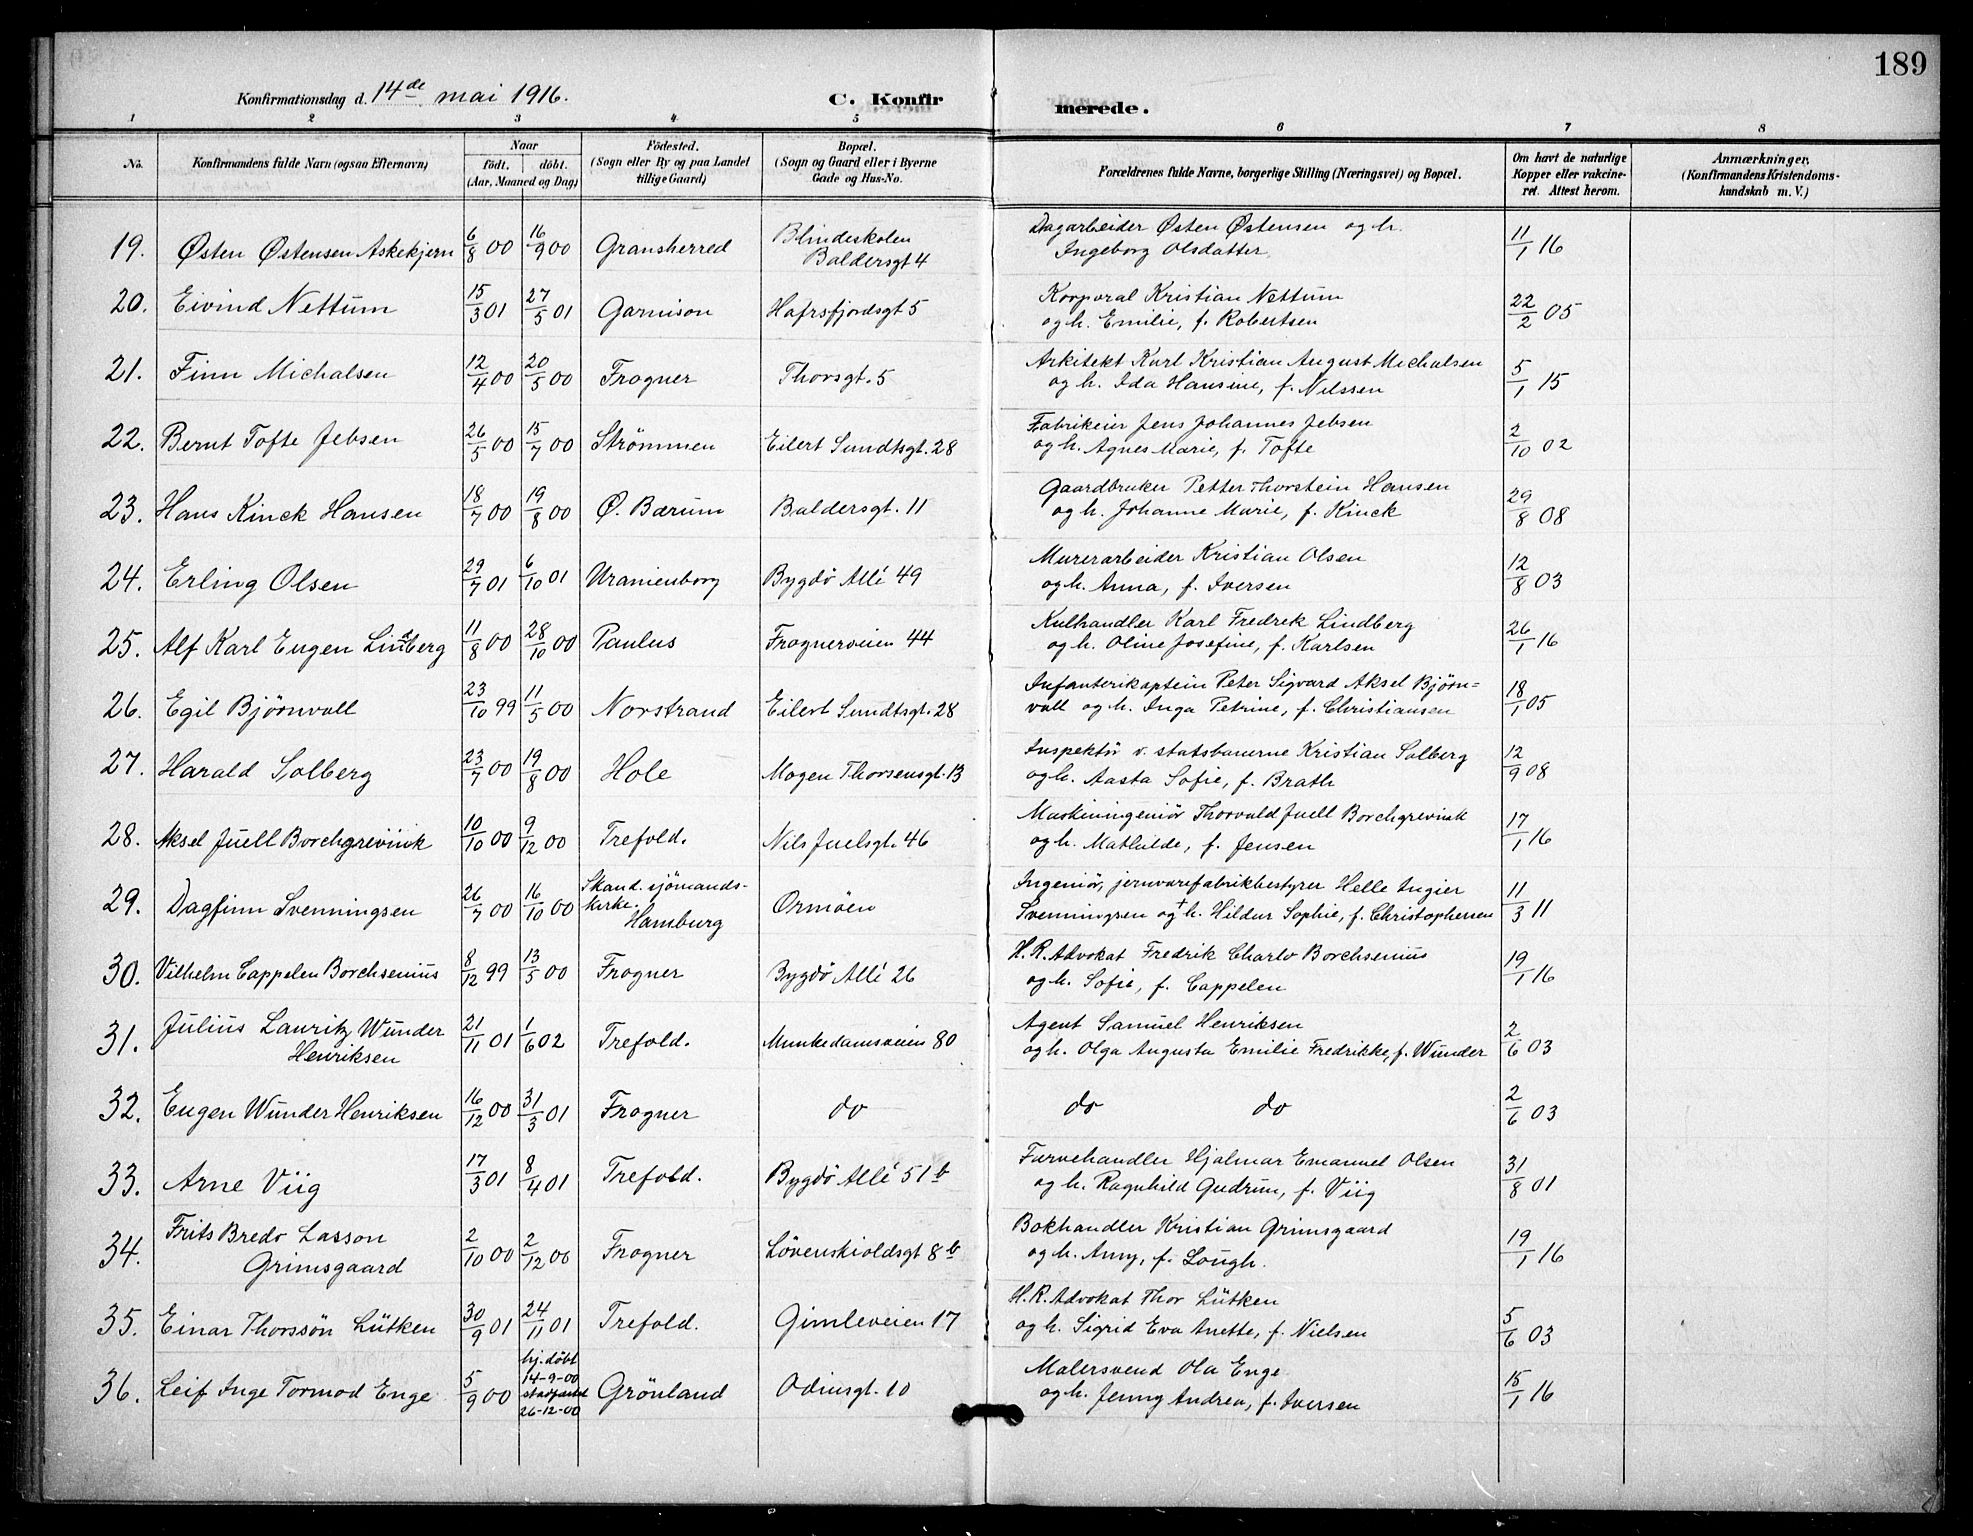 189
Konfirmationsdag d. 14de mai 1916. C. Konfirmerede.
1 2 3 4 5 6 7 8
No. Konfirmandens fulde Navn (ogsaa Efternavn) Naar födt. döbt. (Aar, Maaned og Dag) Födested. (Sogn eller By og paa Landet tillige Gaard) Bopæl. (Sogn og Gaard eller i Byerne Gade og Hus-No. Forældrenes fulde Navne, borgerlige Stilling (Næringsvei) og Bopæl. Om havt de naturlige Kopper eller vakcineret. Attest herom. Anmærkninger, (Konfirmandens Kristendomskundskab m. V.)
19. Østen Østensen Askekjern 6/8 00 16/9 00 Gransherred Blindeskolen Baldersgt 4 Dagarbeider Østen Østensen og h. Ingeborg Olsdatter. 11/1 16
20. Eivind Nettum 15/3 01 27/5 01 Garnison Hafrsfjordsgt 5 Korporal Kristian Nettum og h. Emilie, f. Robertsen 22/2 05
21. Finn Michalsen 12/4 00 20/5 00 Frogner Thorsgt. 5 Arkitekt Karl Kristian August Michalsen og h. Ida Hansine, f. Nilssen 5/1 15
22. Bernt Tofte Jebsen 26/5 00 15/7 00 Strömmen Eilert Sundtsgt. 28 Fabrikeier Jens Johannes Jebsen og h. Agnes Marie, f. Tofte 2/10 02
23. Hans Kinck Hansen 18/7 00 19/8 00 Ø. Bærum Baldersgt. 11 Gaardbruker Petter Thorstein Hansen og h. Johanne Marie, f. Kinck 29/8 08
24. Erling Olsen 29/7 01 6/10 01 Uranienborg Bygdö Allé 49 Murerarbeider Kristian Olsen og h. Anna, f. Iversen 12/8 03
25. Alf Karl Eugen Lindberg 11/8 00 28/10 00 Paulus Frognerveien 44 Kulhandler Karl Fredrek Lindberg og h. Oline Josefine, f. Karlsen 26/1 16
26. Egil Bjørnvall 23/10 99 11/5 00 Norstrand Eilert Sundtsgt. 28 Infanterikaptein Peter Sigvard Aksel Bjørn= vall og h. Inga Petrine, f. Christiansen 18/1 05
27. Harald Solberg 23/7 00 19/8 00 Hole Mogen Thorsensgt. 13 Inspektör v. statsbanerne Kristian Solberg og h. Aasta Sofie, f. Brath 12/9 08
28. Aksel Juell Borchgrevink 10/10 00 9/12 00 Trefold. Nils Juelsgt. 46 Maskiningeniør Thorvald Juell Borchgrevink og h. Mathilde, f. Jensen 17/1 16
29. Dagfinn Svenningsen 26/7 00 16/10 00 Skand. sjömands-kirke. Hamburg Ormöen Ingeniör, jernvarefabrikbestyrer Helle Ingier Svenningsen og † h. Hildur Sophie, f. Christophersen 11/3 11
30. Vilhelm Cappelen Borchsenius 8/12 99 13/5 00 Frogner Bygdö Allé 26 H.R. Advokat Fredrik Charlo Borchsenius og h. Sofie, f. Cappelen 19/1 16
31. Julius Lauritz Wunder Henriksen 21/11 01 1/6 02 Trefold. Munkedamsveien 80 Agent Samuel Henriksen og h. Olga Augusta Emilie Fredrikke, f. Wunder 2/6 03
32. Eugen Wunder Henriksen 16/12 00 31/3 01 Frogner do do do 2/6 03
33. Arne Viig 17/3 01 8/4 01 Trefold. Bygdö Allé 51 b Farvehandler Hjalmar Emanuel Olsen og h. Ragnhild Gudrun, f. Viig 31/8 01
34. Frits Bredo Lasson Grimsgaard 2/10 00 2/12 00 Frogner Lövenskioldsgt 8 b Bokhandler Kristian Grimsgaard og h. Anny, f. Lough. 19/1 16
35. Einar Thorssön Lütken 30/9 01 24/11 01 Trefold. Gimleveien 17 H.R. Advokat Thor Lütken og h. Sigrid Eva Anette, f. Nielsen 5/6 03
36. Leif Inge Tormod Enge 5/9 00 hj. döbt 14-9-00 26-12-00 Grönland Odinsgt. 10 Malersvend Ola Enge og h. Jenny Andrea, f. Iversen 15/1 16